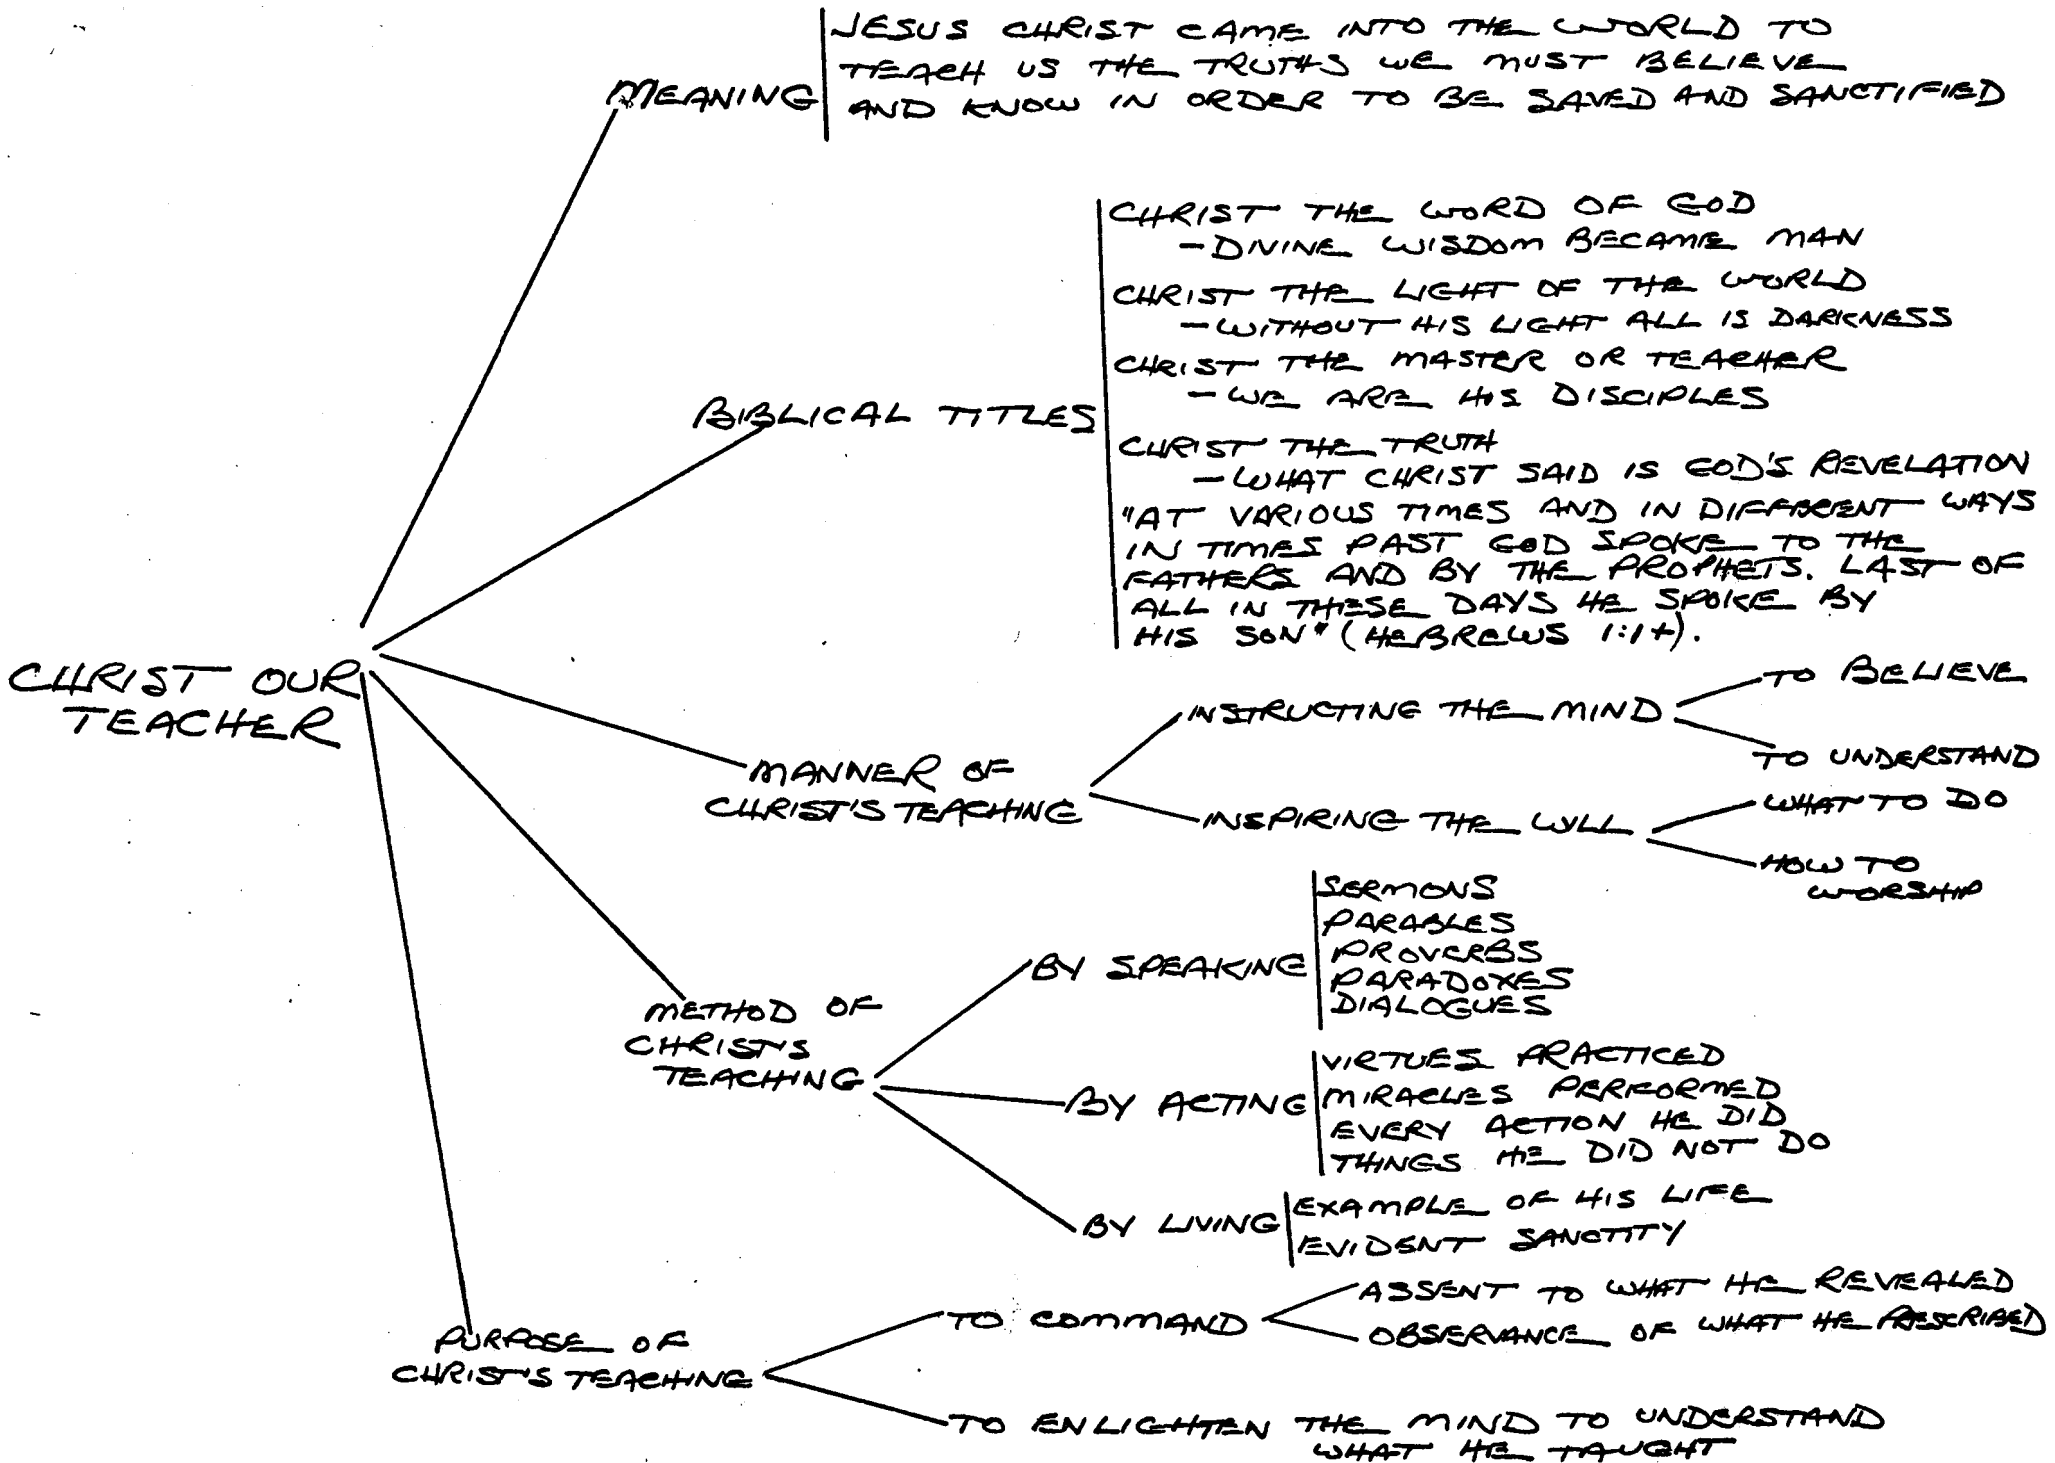 JESUS CHRIST CAME INTO THE WORLD TO
TEACH US THE TRUTHS WE MUST BELIEVE
AND KNOW IN ORDER TO BE SAVED AND SANCTIFIED
MEANING
CHRIST THE WORD OF GOD
- DIVINE WISDOM BECAME MAN
CHRIST THE LIGHT OF THE WORLD
- WITHOUT HIS LIGHT ALL IS DARKNESS
CHRIST THE MASTER OR TEACHER
- WE ARE HIS DISCIPLES
BIBLICAL TITLES
CHRIST THE TRUTH
- WHAT CHRIST SAID IS GOD'S REVELATION
"AT VARIOUS TIMES AND IN DIFFERENT WAYS
IN TIMES PAST GOD SPOKE TO THE
FATHERS AND BY THE PROPHETS. LAST OF
ALL IN THESE DAYS HE SPOKE BY
HIS SON" (HEBREWS 1:1+).
CHRIST OUR
TEACHER
MANNER OF
CHRIST'S TEACHING
INSTRUCTING THE MIND
TO BELIEVE
TO UNDERSTAND
INSPIRING THE WILL
WHAT TO DO
HOW TO
WORSHIP
METHOD OF
CHRIST'S
TEACHING
BY SPEAKING
SERMONS
PARABLES
PROVERBS
PARADOXES
DIALOGUES
BY ACTING
VIRTUES PRACTICED
MIRACLES PERFORMED
EVERY ACTION HE DID
THINGS HE DID NOT DO
BY LIVING
EXAMPLE OF HIS LIFE
EVIDENT SANCTITY
PURPOSE OF
CHRIST'S TEACHING
TO COMMAND
ASSENT TO WHAT HE REVEALED
OBSERVANCE OF WHAT HE PRESCRIBED
TO ENLIGHTEN THE MIND TO UNDERSTAND
WHAT HE TAUGHT